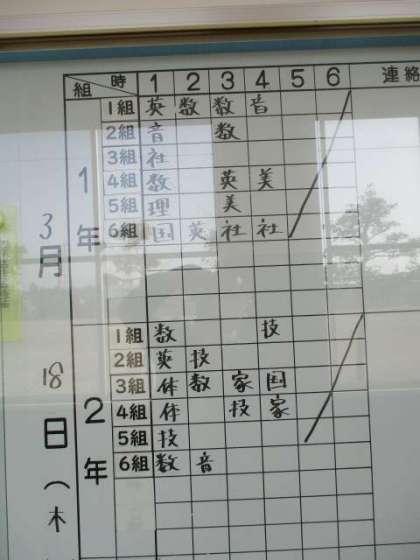 組 時 1 2 3 4 5 6 連絡
3月18日(木
1年
1組 英 数 数 音
2組 音 数
3組 社
4組 数 英 美
5組 理 美
6組 国 英 社 社
2年
1組 数 技
2組 英 技
3組 体 数 家 国
4組 体 技 家
5組 技
6組 数 音